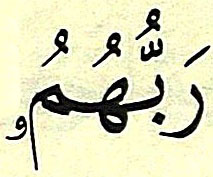 رَبُّهُمُۥ